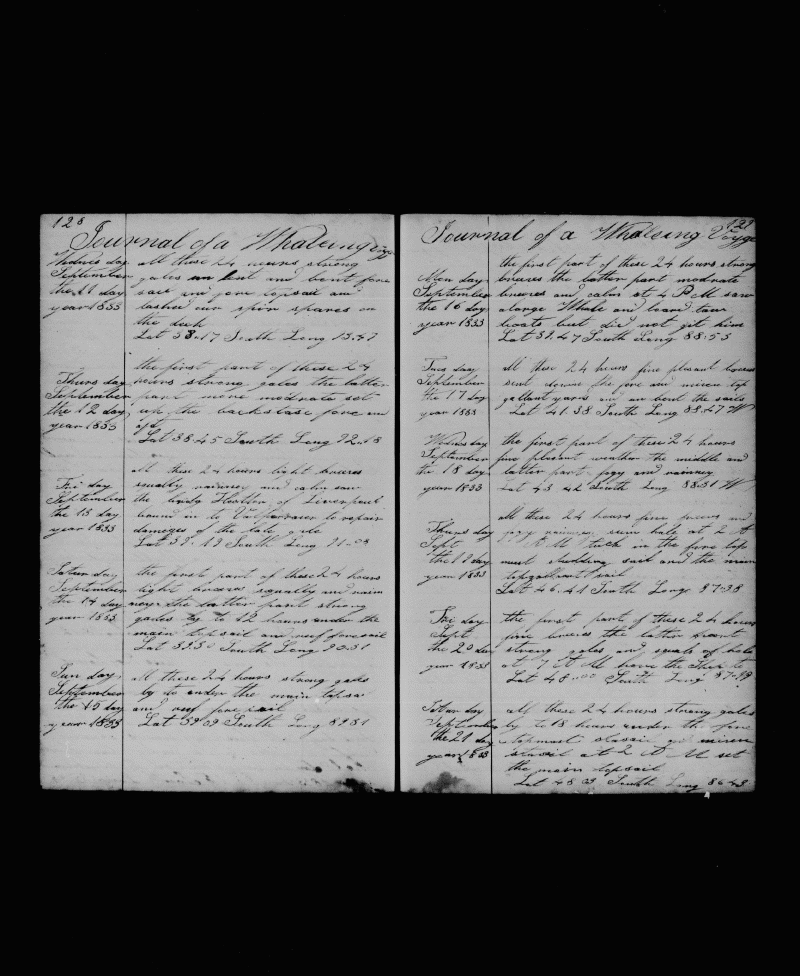 128
Journal of a Whaleing Voyge
Wednes day
September
the 11 day
year 1833
all these 24 hours strong
gales and bent fore
sail and fore topsail and
lashed our spars on
the deck
Lat 38.17 South Long
Thurs day
September
the 12 day
year 1833
the first part of these 24
hours strong gales the latter
part more moderate set
up the backstase fore and
aft
Lat 38.45 South Long 92.18
Fri day
September
the 13 day
year 1833
all these 24 hours light breeses
squally rainney and calm saw
the of Liverpool
bound in to to repair
dameges of the late gale
Lat 39.19 South Long 91.03
Satur day
September
the 14 day
year 1833
the first part of these 24 hours
light breeses squally and rain
ney the latter part strong
gales by 12 hours under the
main topsail and reef foresail
Lat South Long 90.31
Sun day
September
the 15 day
year 1833
all these 24 hours strong gales
by to under the main topsa
and reef fore sail
Lat 39 09 South Long 89 51
129
Journal of a Whaleing Voyge
Mon day
September
the 16 day
year 1833
the first part of these 24 hours strong
breeses the latter part modrate
breeses and calm at 4 P M saw
a large Whale and lowrd
boats but did not get him
Lat South Long 88:55
Tues day
September
the 17 day
year 1833
all these 24 hours fine plesant breeses
sent down the fore and misen top
gallant yards and un bent the sails
Lat 41.38 South Long 88.47 W
Wednes day
September
the 18 day
year 1833
the first part of these 24 hours
fine plesant weather the middle and
latter part fogy and rainney
Lat 43 42 South Long 88.31 W
Thurs day
Sept
the 19 day
year 1833
all these 24 hours fine breeses and
fogy rainney hale at 2 A
M took in the fore top
mast studding sail and the main
topgallant sail
Lat 46.41 South Longe 87.38
Fri day
Sept
the 20 day
year 1833
the first part of these 24 hours
fine breeses the latter part
strong gales and squals of hale
at 7 A M hove the Ship to
Lat 48.00 South Long 87.19
Satur day
September
the 21 day
year 1833
all these 24 hours strong gales
by to 18 hours under the fore
topmast stasail and misen
stasail at 2 A M set
the main topsail
Lat 48 03 South Long 86 43